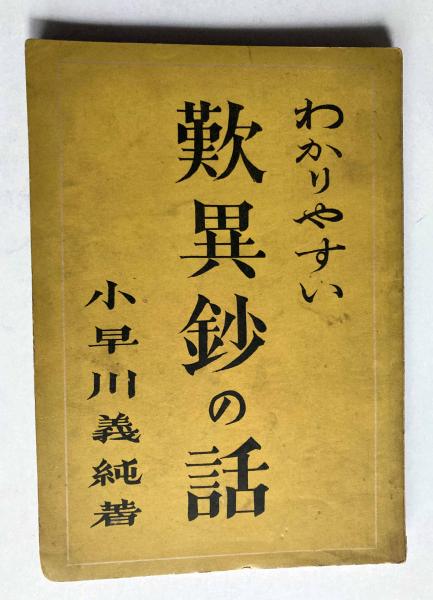 わかりやすい
歎異鈔の話
小早川義純著